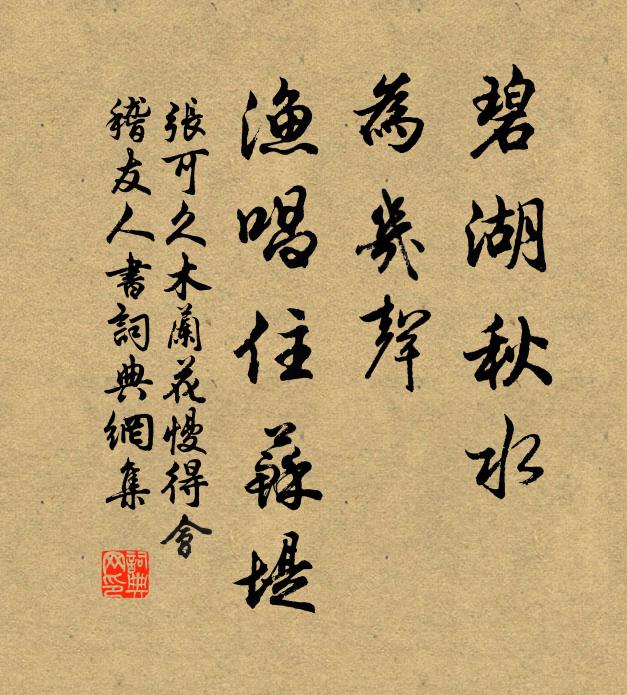 碧湖秋水
為幾聲
漁唱住蘇堤
張可久木蘭花慢得會
稽友人書詞典網集
詞典网印